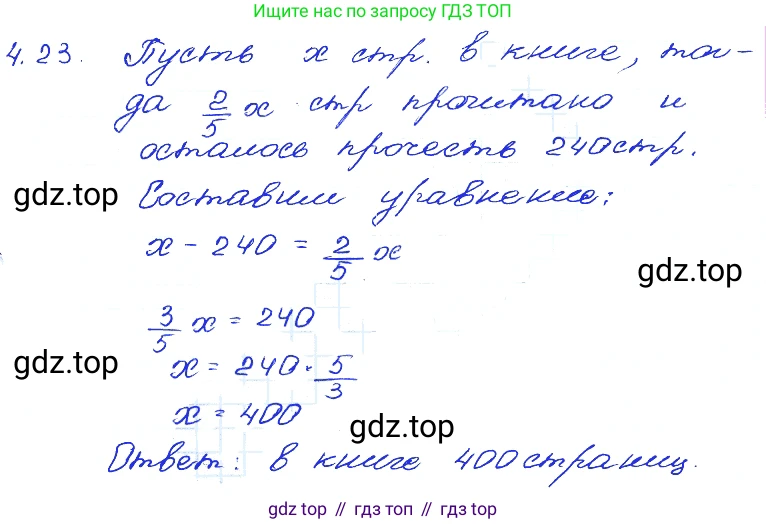 Ищите нас по запросу ГДЗ ТОП
4.23. Пусть x стр. в книге, тог-
да 2/5 x стр прочитано и
осталось прочесть 240 стр.
gdz.top Составим уравнение:
x - 240 = 2/5 x
gdz.top
3/5 x = 240
gdz.top x = 240 · 5/3
x = 400
gdz.top
Ответ: в книге 400 страниц.
gdz.top // gdz.top // gdz.top